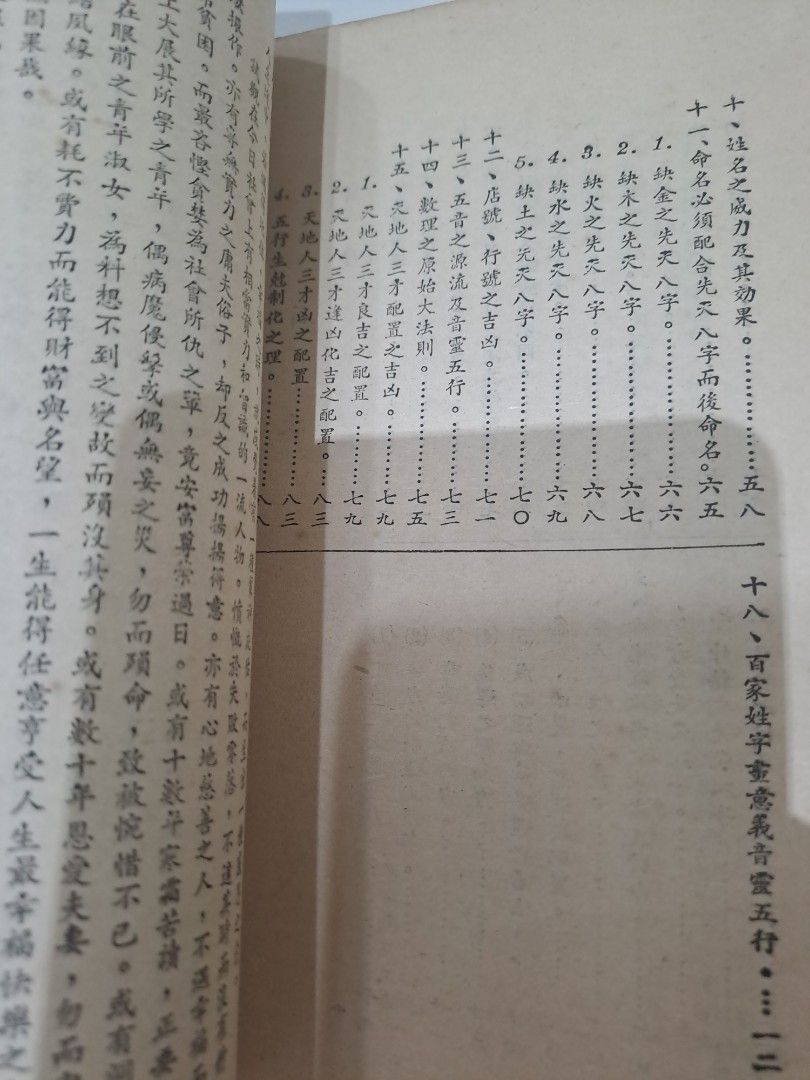 十、姓名之威力及其効果。……………五八
十一、命名必須配合先天八字而後命名。六五
1. 缺金之先天八字。……………六六
2. 缺木之先天八字。……………六七
3. 缺火之先天八字。……………六八
4. 缺水之先天八字。……………六九
5. 缺土之先天八字。……………七〇
十二、店號、行號之吉凶。……………七一
十三、五音之源流及音靈五行。………七三
十四、數理之原始大法則。……………七五
十五、天地人三才配置之吉凶。………七九
1. 天地人三才良吉之配置。………七九
2. 天地人三才逢凶化吉之配置。…八三
3. 天地人三才凶之配置……………八三
4. 五行生尅制化之理。……………八八
十八、百家姓字畫意義音靈五行。…一二
在今日社會上有相當實力和
的一流人物。憤慨於失敗零落，不
操作。亦有毫無實力之庸夫俗子，却反之成功揚揚得意。亦有心地慈善之人，不遇幸福
貧困。而最吝慳貪婪為社會所仇之軰，竟安富尊榮過日。或有十數年寒霜苦讀，正要
上大展其所學之青年，偶病魔侵擊或偶無妄之災，勿而頭命，致被惋惜不已。或有
在眼前之青年淑女，為料想不到之變故而頭沒其身。或有數十年恩愛夫妻，勿而
夙緣。或有耗不費力而能得財富與名望，一生能得任意亨受人生最幸福快樂之
因果哉。